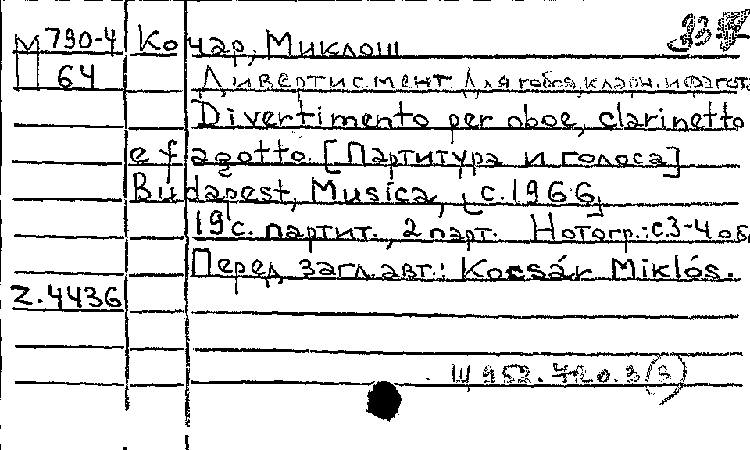 М 790-4 Кочар, Миклош
П 64 Дивертисмент для гобоя, кларн. и фагота
Divertimento per oboe, clarinetto
e fagotto. [Партитура и голоса]
Budapest, Musica, [с. 1966]
19 с. партит., 2 парт. Нотогр.: с. 3-4 об
Перед загл. авт.: Kocsár Miklós.
Z. 4436
Щ 952. 720. 3 (3)